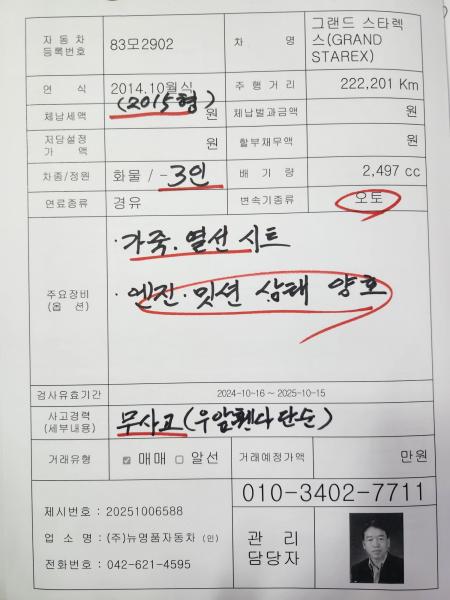 자동차 등록번호 83모2902 차 명 그랜드 스타렉스(GRAND STAREX)
연 식 2014.10월식 주 행 거 리 222,201 Km
(2015형)
체납세액 원 체납벌과금액 원
저당설정 가 액 원 할부채무액 원
차종/정원 화물 / - 3인 배 기 량 2,497 cc
연료종류 경유 변속기종류 오토
주요장비 (옵 션)
· 가죽. 열선 시트
· 엔진. 밋션 상태 양호
검사유효기간 2024-10-16 ~ 2025-10-15
사고경력 (세부내용) 무사고(우앞휀다단순)
거래유형 ☑ 매매 □ 알선 거래예정가액 만원
010-3402-7711
제시번호 : 20251006588
업 소 명 : (주)뉴명품자동차 (인)
전화번호 : 042-621-4595
관 리
담당자